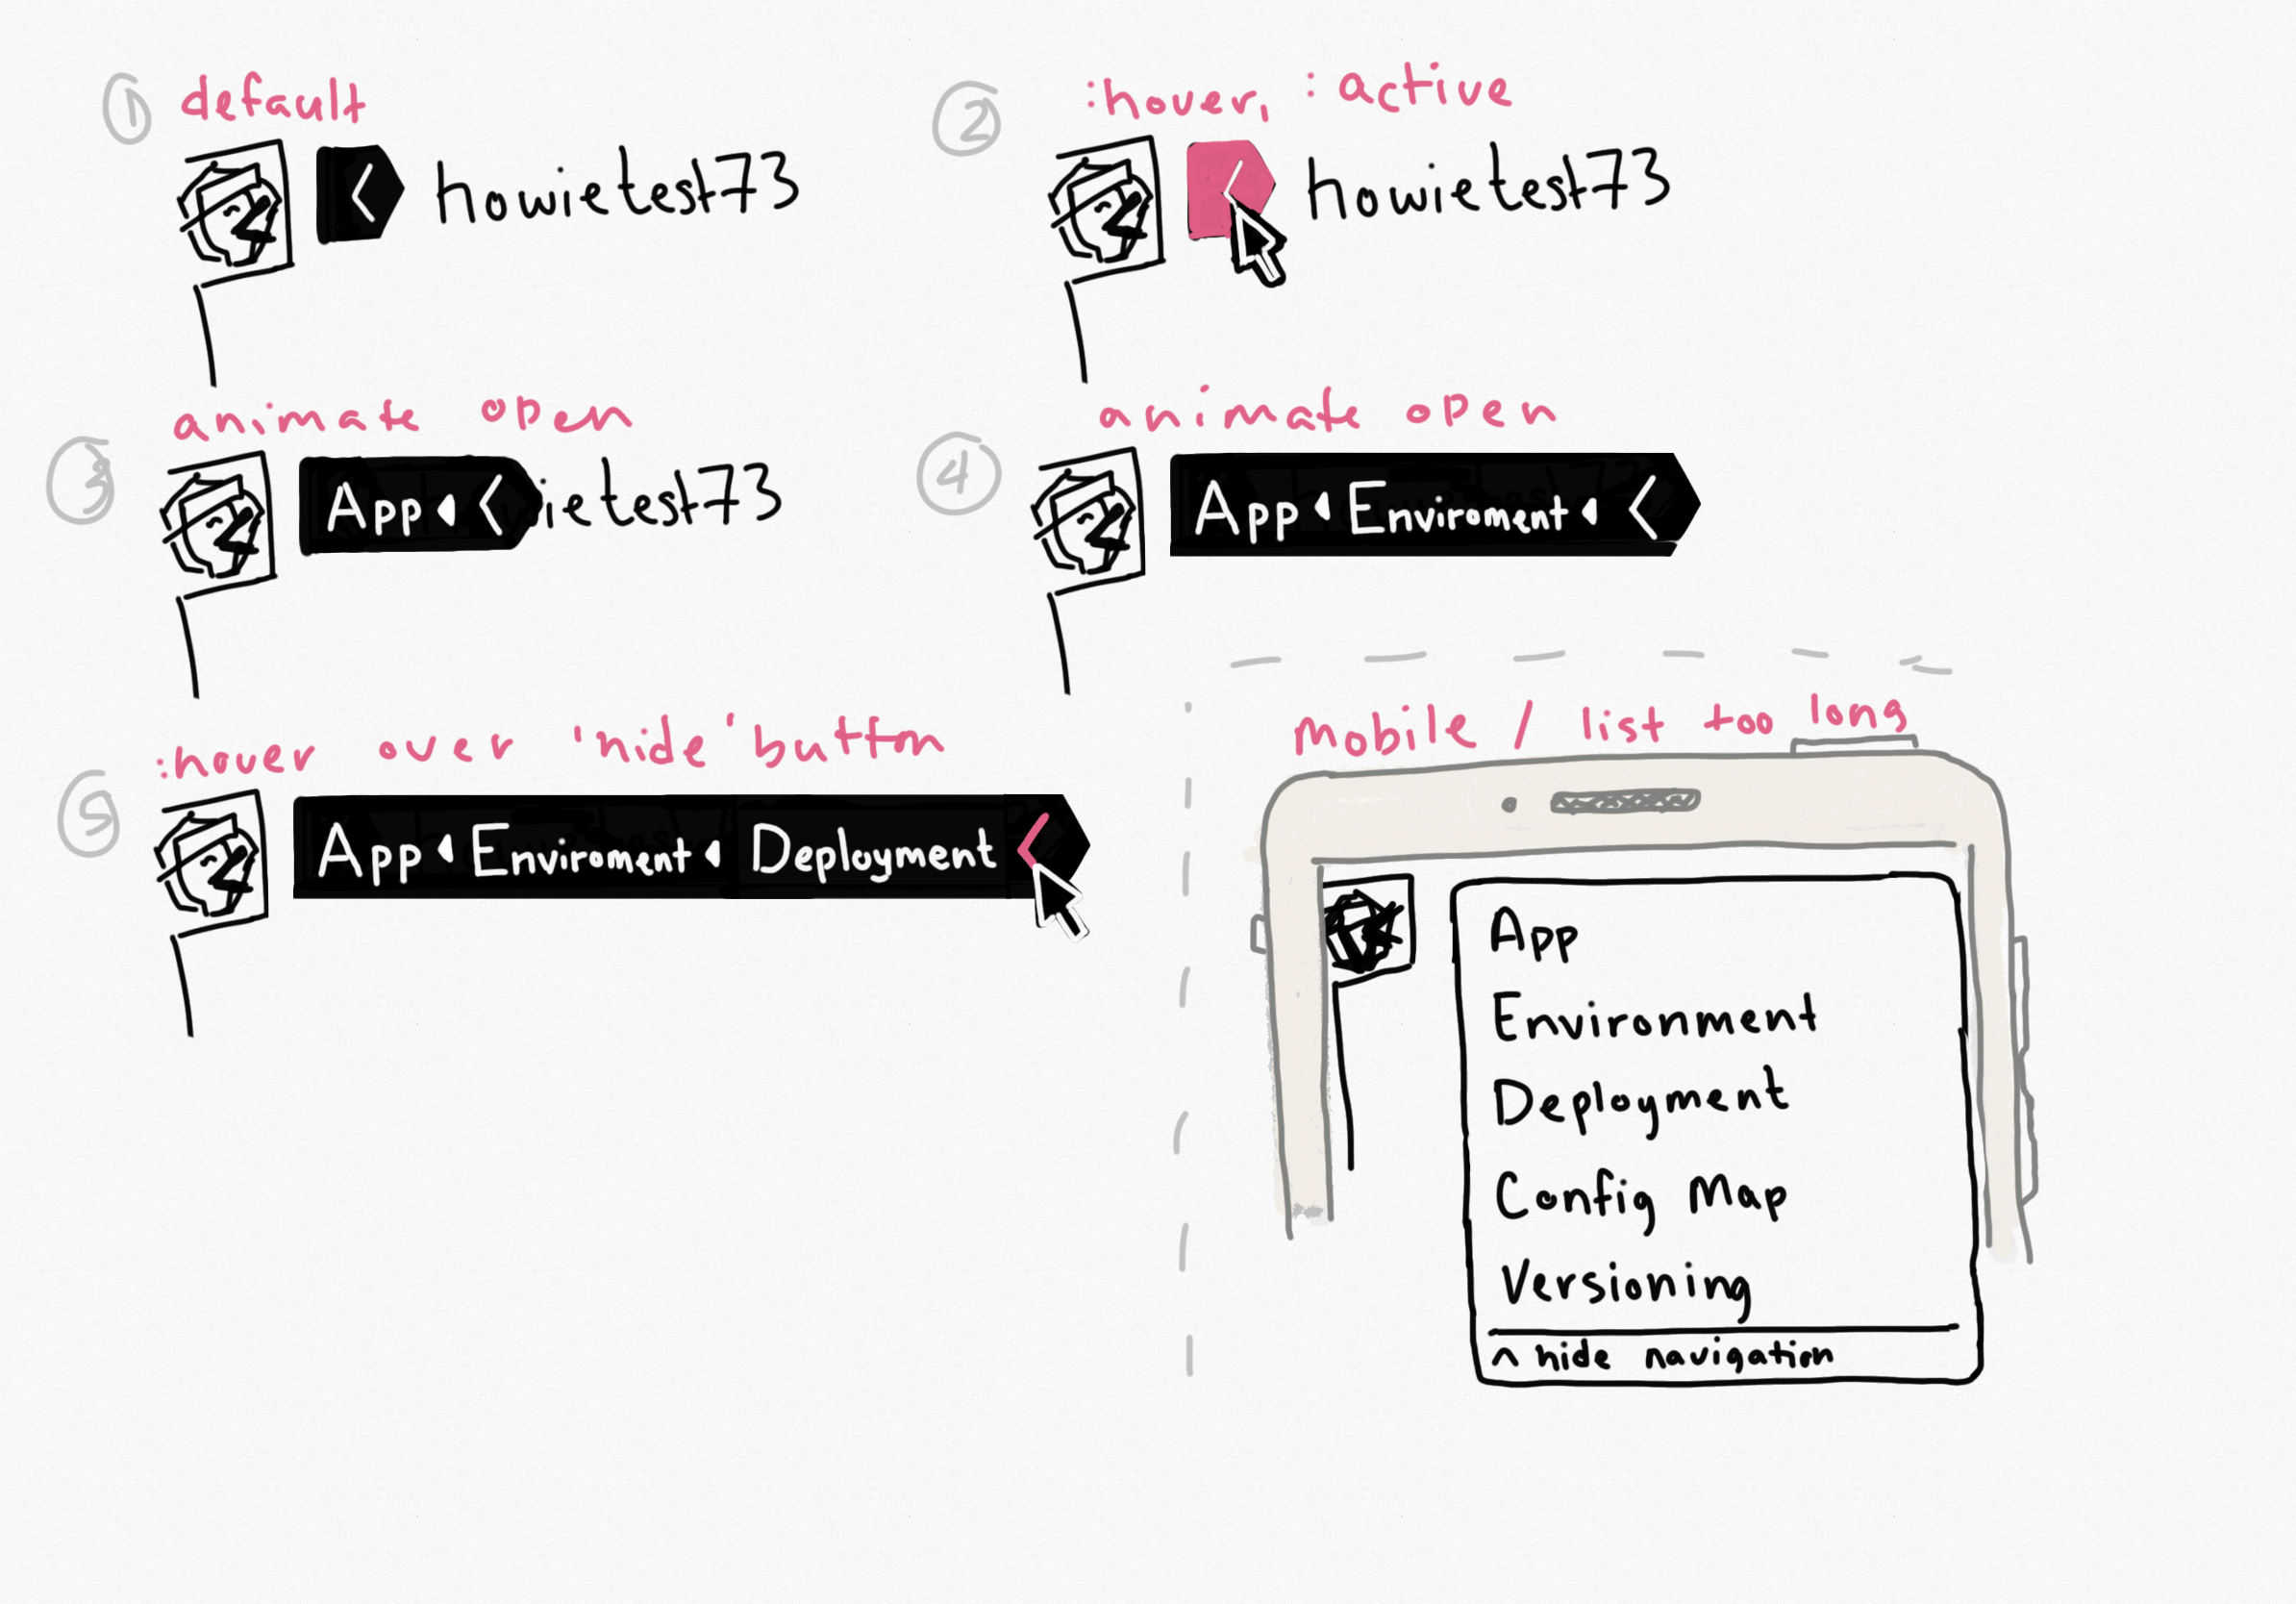 1 default
< howietest73
2 :hover, :active
< howietest73
3 animate open
App < ietest73
4 animate open
App Enviroment <
5 :hover over 'hide' button
App Enviroment Deployment <
mobile / list too long
App
Environment
Deployment
Config Map
Versioning
^ hide navigation